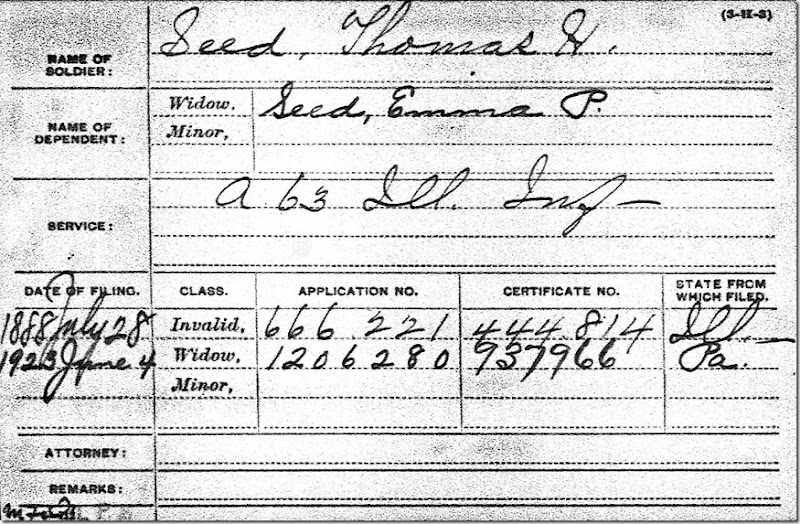 (3-II-3)
NAME OF SOLDIER: Seed, Thomas H.
NAME OF DEPENDENT: Widow, Seed, Emma P.
Minor,
SERVICE: A 63 Ill. Inf
DATE OF FILING. CLASS. APPLICATION NO. CERTIFICATE NO. STATE FROM WHICH FILED.
1888 July 28 Invalid, 666 221 444 814 Ill.
1923 June 4 Widow, 1206280 937966 Pa.
Minor,
ATTORNEY:
REMARKS: